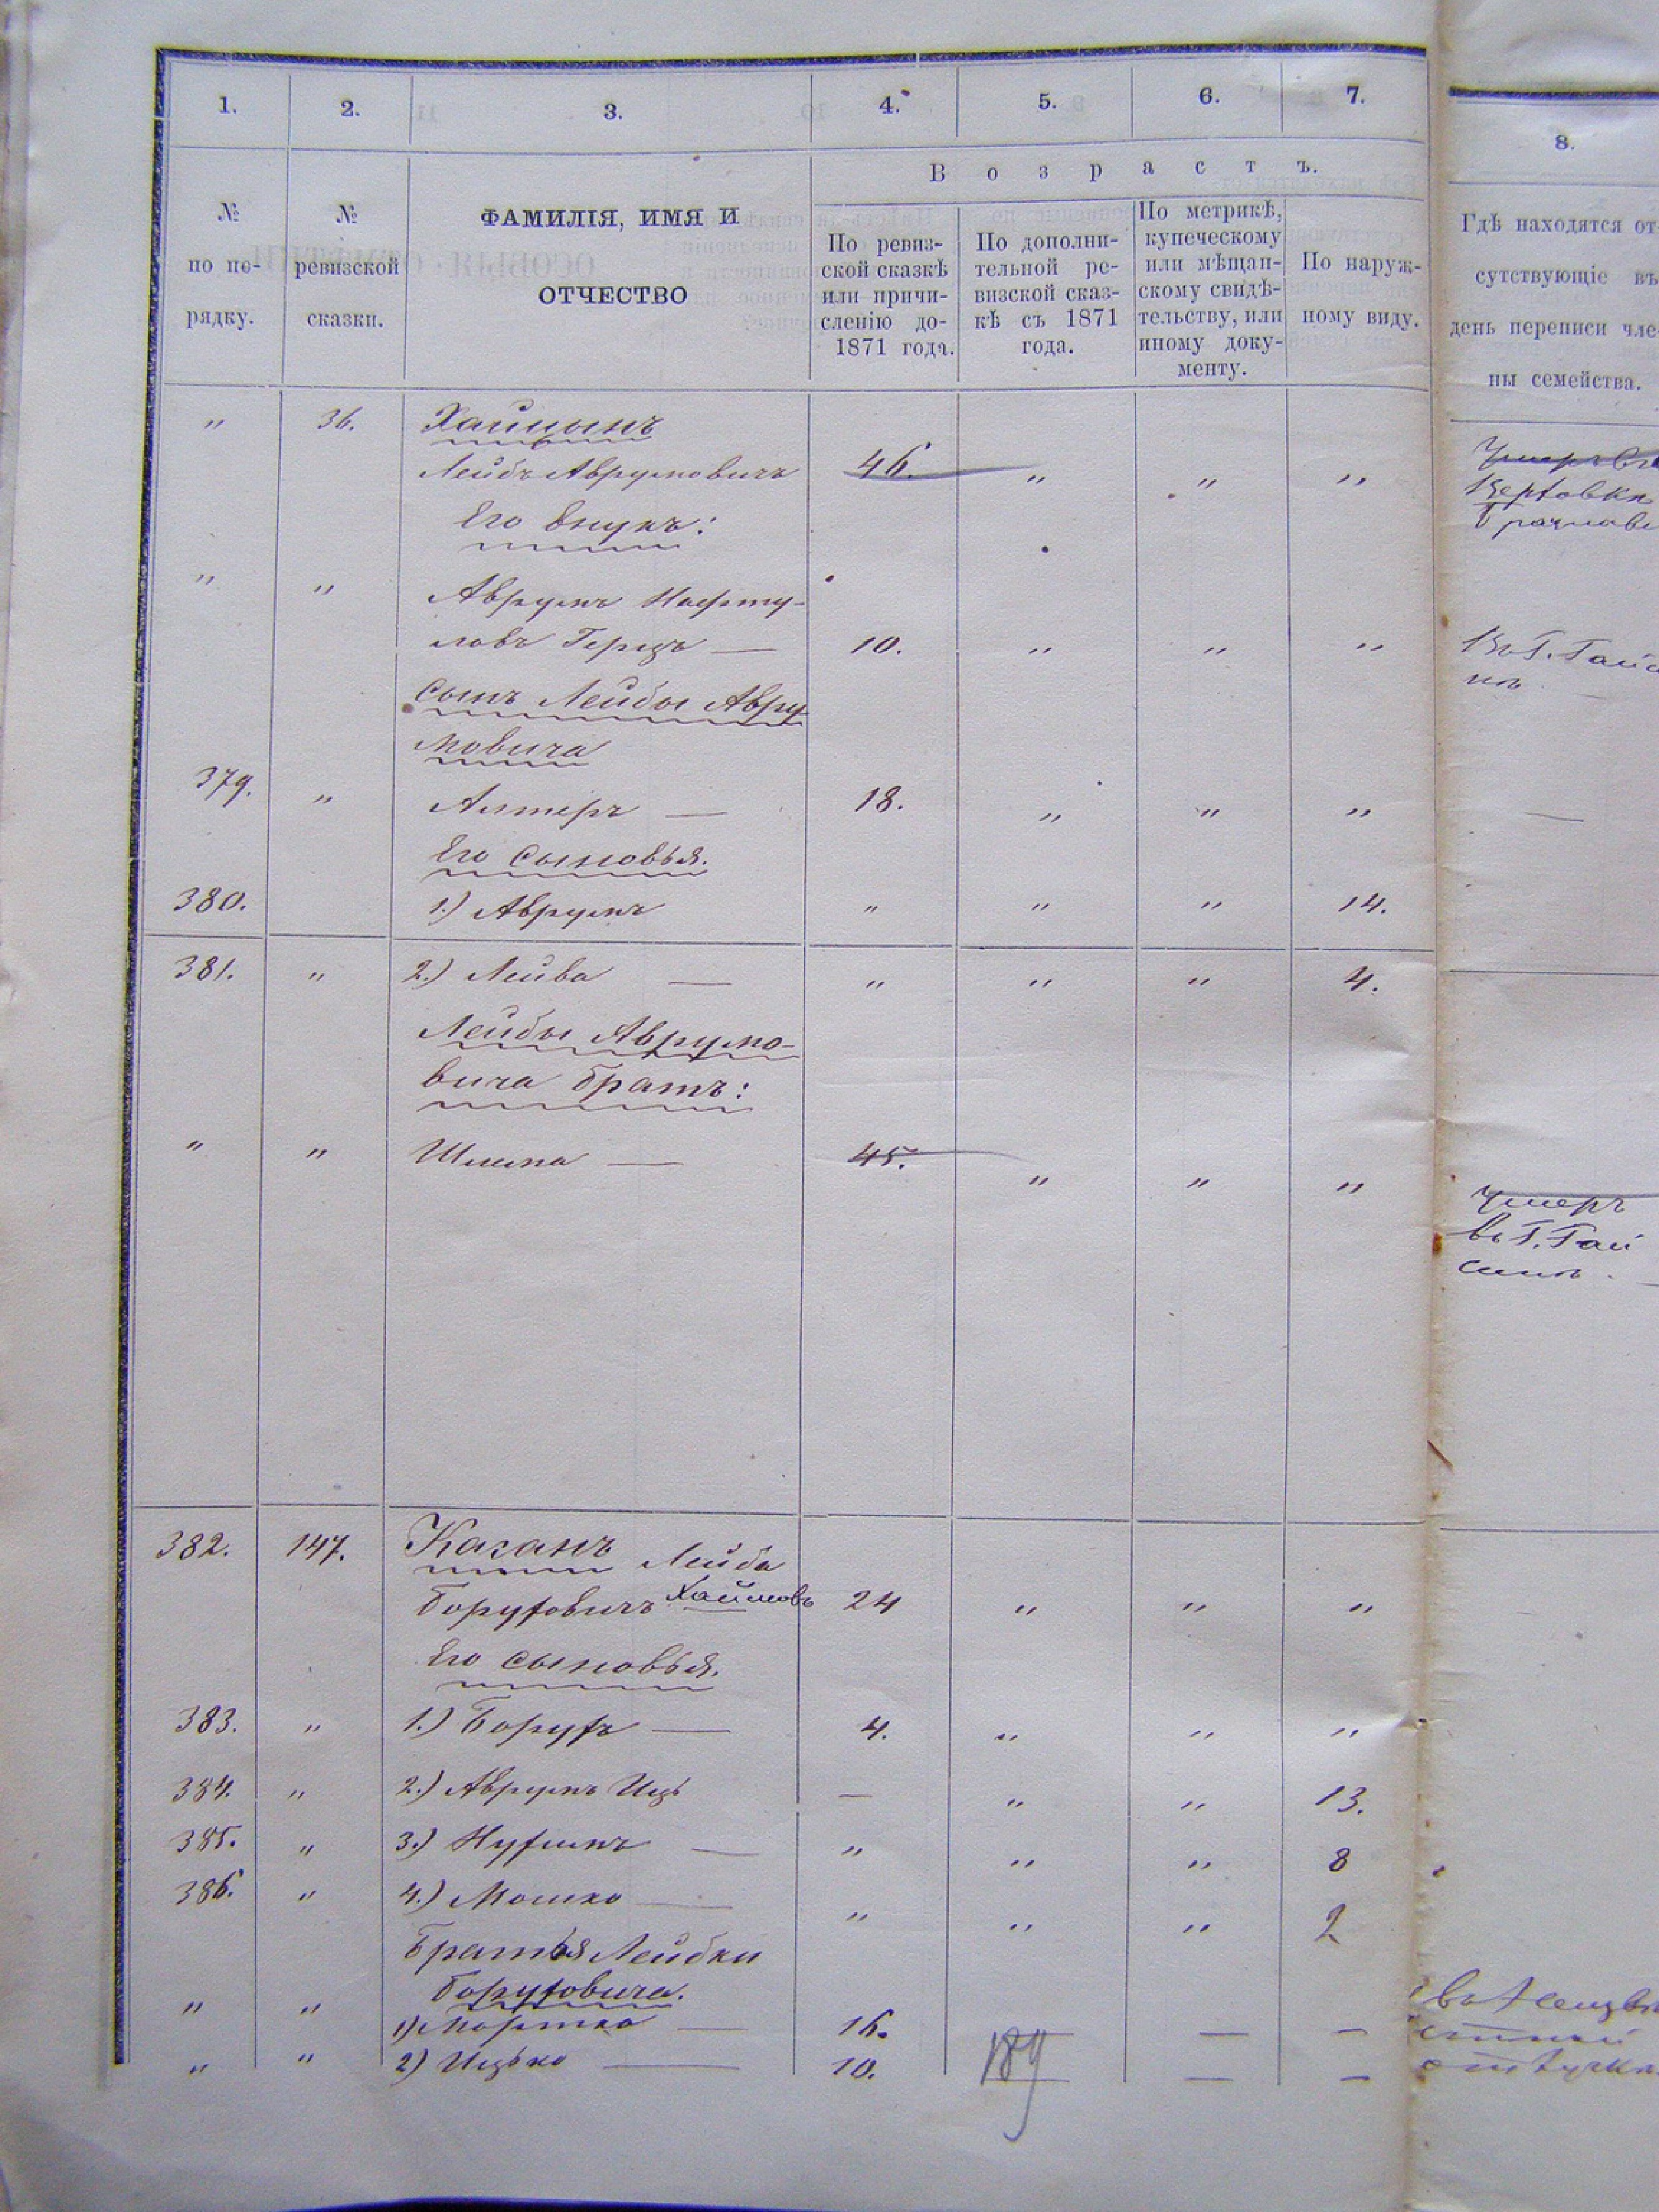 1. 2. 3. 4. 5. 6. 7.
8.
Возрастъ.
№ по порядку.
№ ревизской сказки.
ФАМИЛІЯ, ИМЯ И
ОТЧЕСТВО
По ревиз-
ской сказкѣ
или причи-
сленію до-
1871 года.
По дополни-
тельной ре-
визской сказ-
кѣ съ 1871
года.
По метрикѣ,
купеческому
или мѣщан-
скому свидѣ-
тельству, или
иному доку-
менту.
По наруж-
ному виду.
Гдѣ находятся от-
сутствующіе въ
день переписи чле-
ны семейства.
" 36.
Лейбъ Аврумовичъ 46. " " "
Его внукъ:
" " Аврумъ Нафту-
ловъ Герцъ — 10. " " " Въ г. Гай
сынъ Лейбы Авру-
мовича
379. " Алтеръ — 18. " " " —
Его сыновья.
380. 1.) Аврумъ " " " 14.
381. " 2.) Лейва — " " " 4.
Лейбы Аврумо-
вича братъ:
" " Шлема — 45. " " " Умеръ
въ г. Гай
382. 147. Каганъ Лейба
Боруховичъ Хаимовъ 24 " " "
Его сыновья.
383. " 1.) Борухъ — 4. " " "
384. " 2.) Аврумъ Ицъ — " " 13.
385. " 3.) Нухимъ — " " " 8
386. " 4.) Мошко — " " " 2
Братья Лейбки
Боруховича.
" " 1) Мортко — 16. — — —
" " 2) Ицько — 10. — — —
189